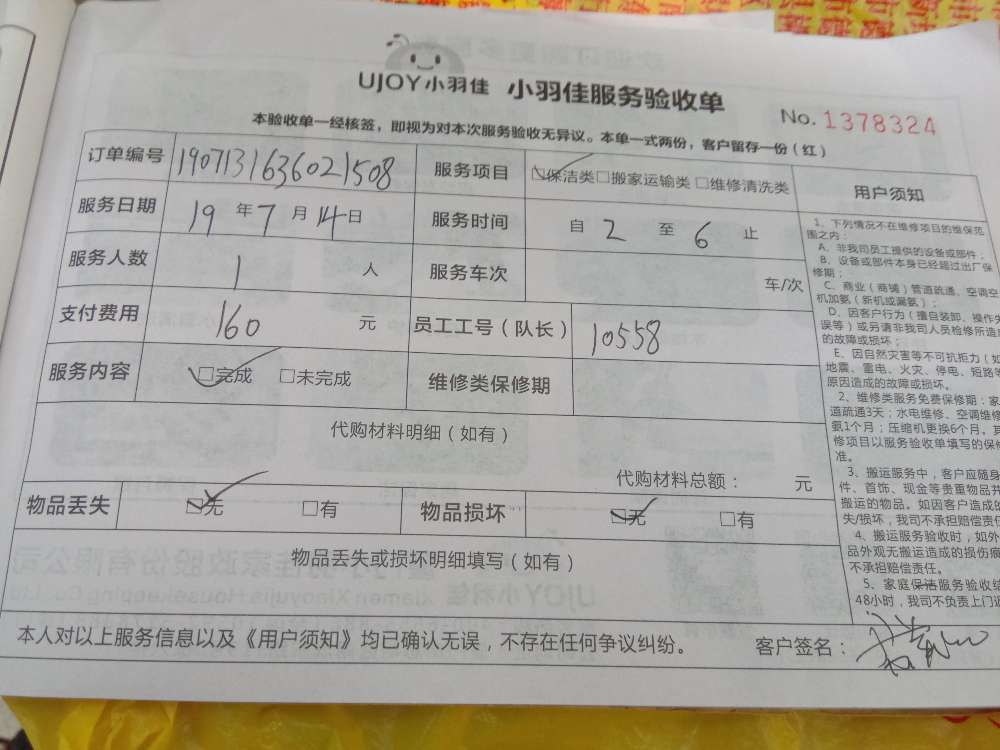 UJOY小羽佳 小羽佳服务验收单
No. 1378324
本验收单一经核签，即视为对本次服务验收无异议。本单一式两份，客户留存一份（红）
订单编号 1907131636021508 服务项目 ☑保洁类□搬家运输类□维修清洗类
服务日期 19年7月14日 服务时间 自2至6止
服务人数 1人 服务车次 车/次
支付费用 160元 员工工号（队长） 10558
服务内容 ☑完成 □未完成 维修类保修期
代购材料明细（如有）
代购材料总额： 元
物品丢失 ☑无 □有 物品损坏 ☑无 □有
物品丢失或损坏明细填写（如有）
本人对以上服务信息以及《用户须知》均已确认无误，不存在任何争议纠纷。 客户签名：
用户须知
1、下列情况不在维修项目的维保范
围之内：
A、非我司员工提供的设备或部件；
B、设备或部件本身已经超过出厂保
修期；
C、商业（商铺）管道疏通、空调空
机加氨（新机或漏氨）；
D、因客户行为（擅自装卸、操作失
误等）或另请非我司人员检修所造成
的故障或损坏；
E、因自然灾害等不可抗拒力（如
地震、雷电、火灾、停电、短路等
原因造成的故障或损坏。
2、维修类服务免费保修期：家
道疏通3天；水电维修、空调维修
氨1个月；压缩机更换6个月。其
修项目以服务验收单填写的保修
准。
3、搬运服务中，客户应随身
件、首饰、现金等贵重物品并
搬运的物品。如因客户造成的
失/损坏，我司不承担赔偿责任
4、搬运服务验收时，如外
品外观无搬运造成的损伤痕
不承担赔偿责任。
5、家庭保洁服务验收结
48小时，我司不负责上门返